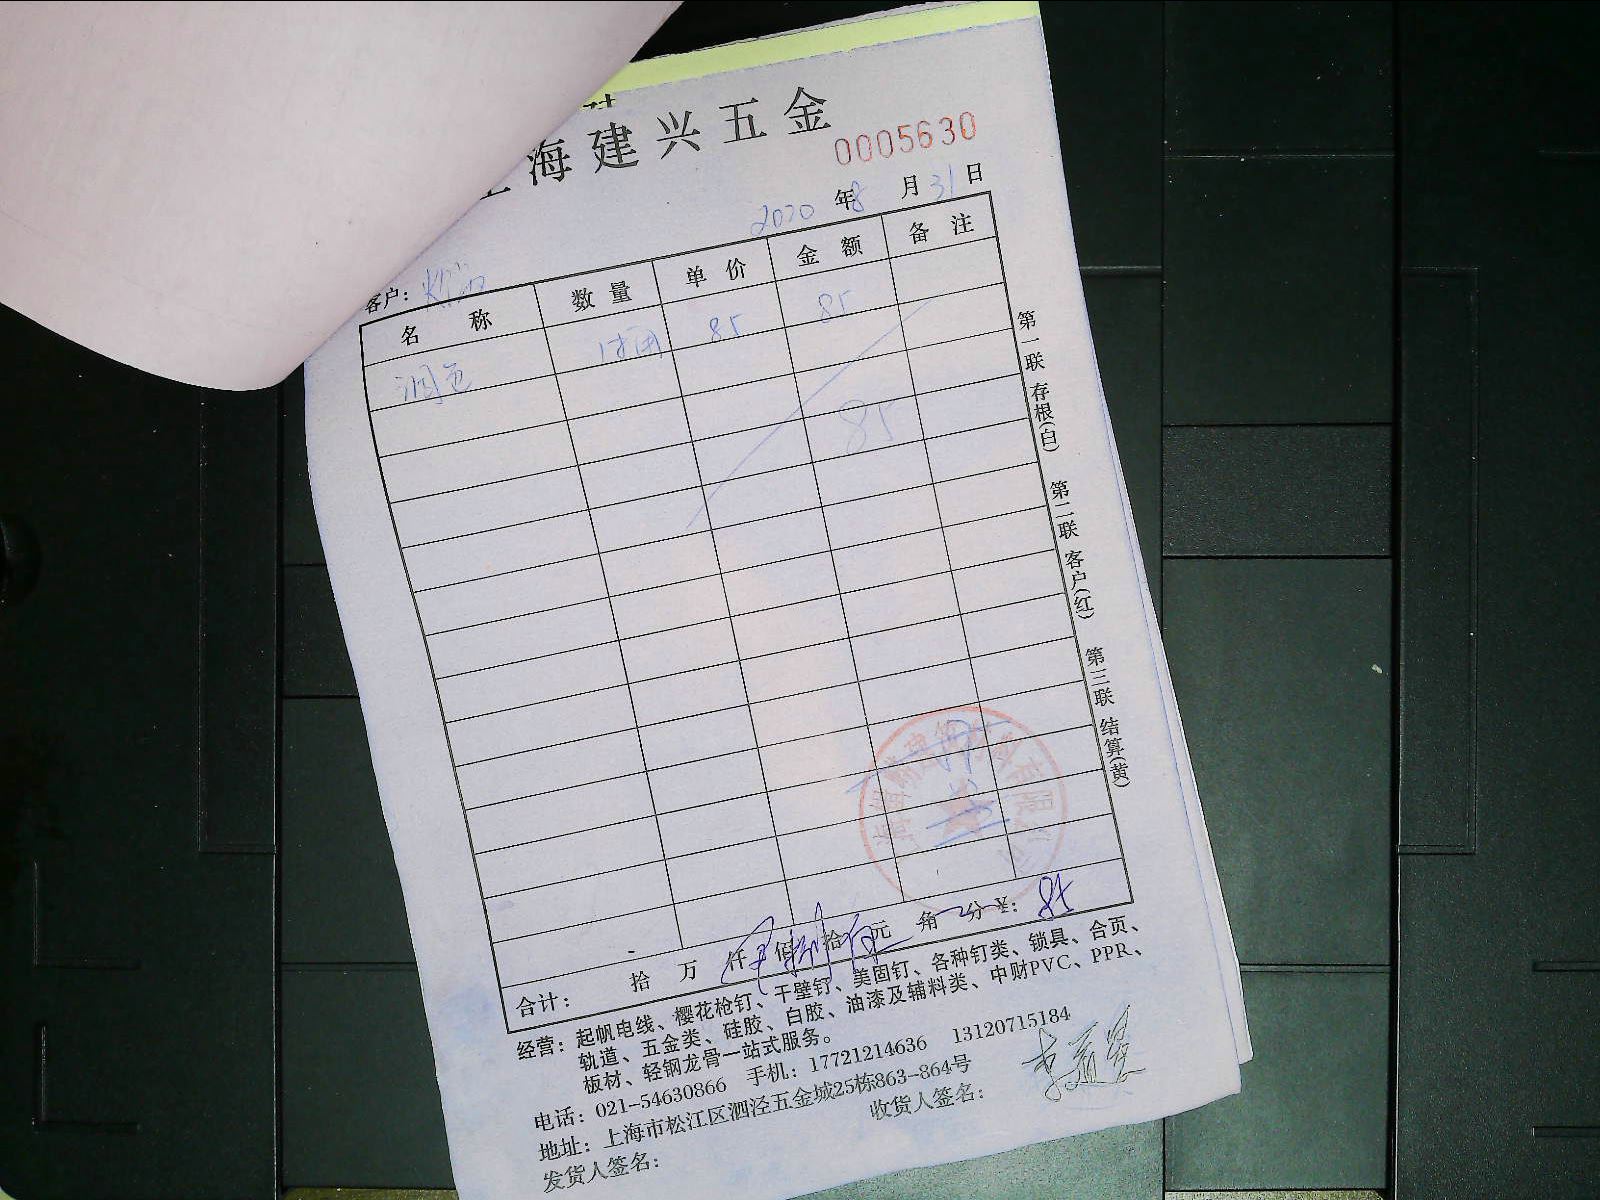 海建兴五金
0005630
2020年8月31日
客户：
名称 数量 单价 金额 备注
85 85
85
第一联 存根(白) 第二联 客户(红) 第三联 结算(黄)
合计： 拾 万 仟 佰 拾 元 角 分 ¥: 85
经营：起帆电线、樱花枪钉、干壁钉、美固钉、各种钉类、锁具、合页、
轨道、五金类、硅胶、白胶、油漆及辅料类、中财PVC、PPR、
板材、轻钢龙骨一站式服务。
电话：021-54630866 手机：17721214636 13120715184
地址：上海市松江区泗泾五金城25栋863-864号
发货人签名： 收货人签名：